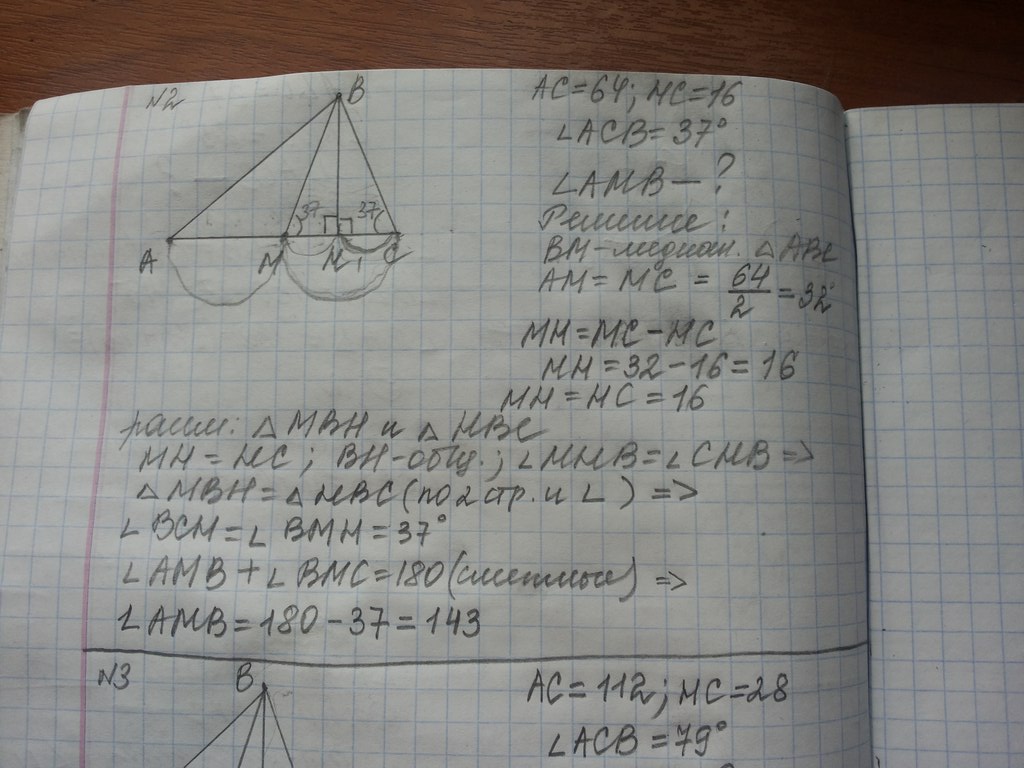 N2
B
37 37
A M H C
AC=64; HC=16
∠ACB=37°
∠AMB — ?
Решение:
BM-медиан. △ABC
AM = MC = 64/2 = 32°
MH=MC-HC
MH=32-16=16
MH=HC=16
рассм: △MBH и △HBC
MH=HC; BH-общ.; ∠MHB=∠CHB =>
△MBH=△HBC (по 2 стр. и ∠) =>
∠BCH=∠BMH=37°
∠AMB+∠BMC=180 (смежные) =>
∠AMB=180-37=143
N3
B
AC=112; HC=28
∠ACB=79°